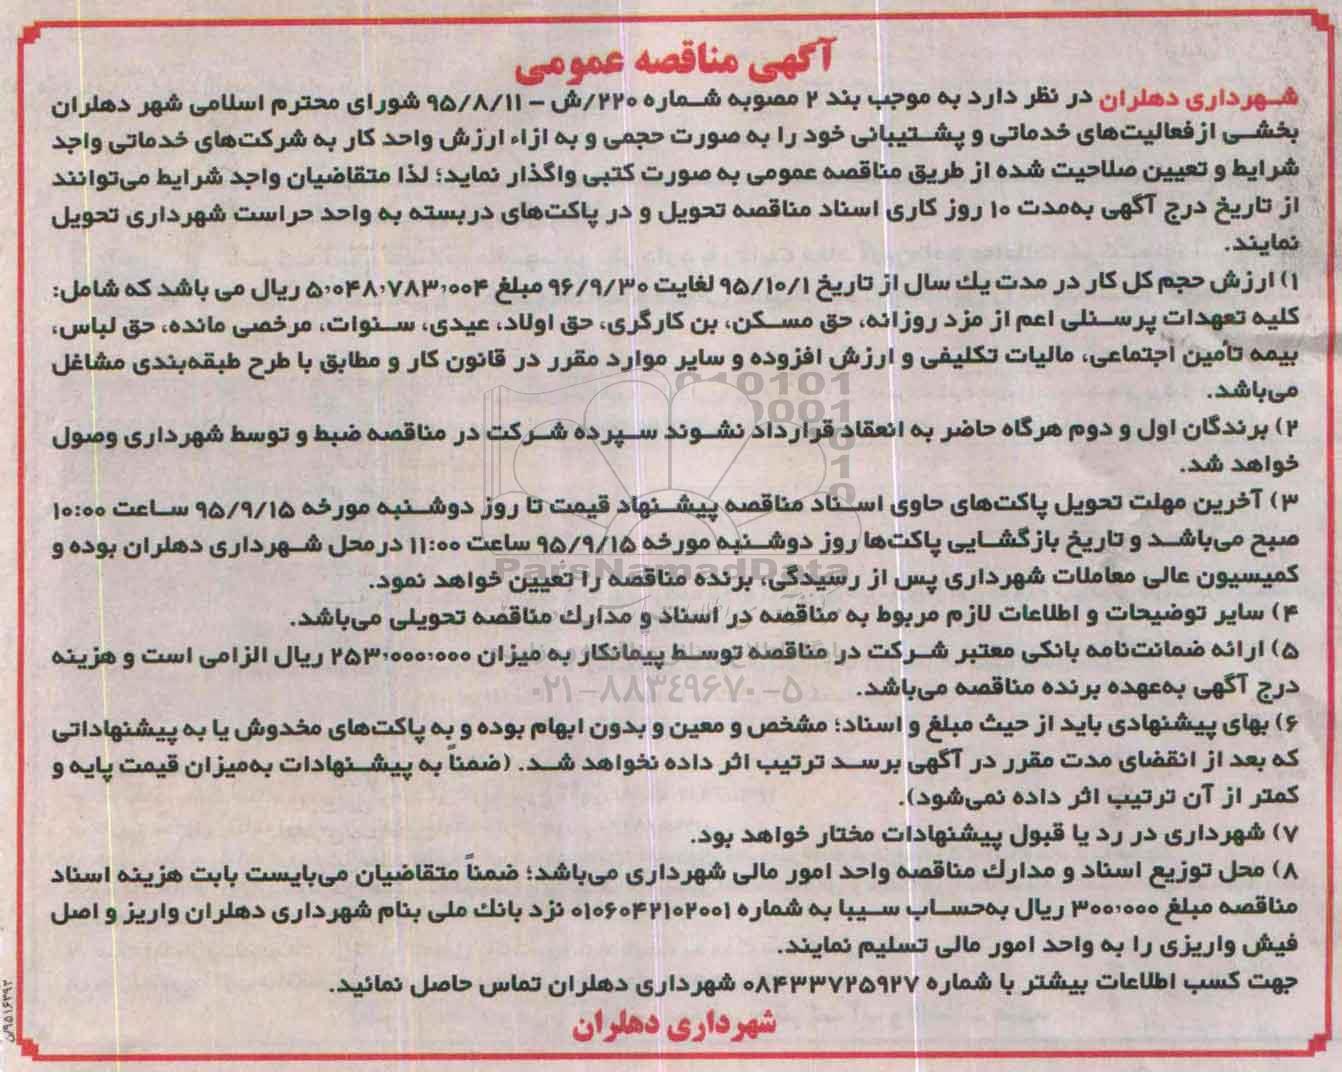 آگهی مناقصه عمومی
شهرداری دهلران در نظر دارد به موجب بند ۲ مصوبه شماره ۲۲۰/ش – ۹۵/۸/۱۱ شورای محترم اسلامی شهر دهلران
بخشی از فعالیت‌های خدماتی و پشتیبانی خود را به صورت حجمی و به ازاء ارزش واحد کار به شرکت‌های خدماتی واجد
شرایط و تعیین صلاحیت شده از طریق مناقصه عمومی به صورت کتبی واگذار نماید؛ لذا متقاضیان واجد شرایط می‌توانند
از تاریخ درج آگهی به‌مدت ۱۰ روز کاری اسناد مناقصه تحویل و در پاکت‌های دربسته به واحد حراست شهرداری تحویل
نمایند.
۱) ارزش حجم کل کار در مدت یك سال از تاریخ ۹۵/۱۰/۱ لغایت ۹۶/۹/۳۰ مبلغ ۵،۰۴۸،۷۸۳،۰۰۴ ریال می باشد که شامل:
کلیه تعهدات پرسنلی اعم از مزد روزانه، حق مسکن، بن کارگری، حق اولاد، عیدی، سنوات، مرخصی مانده، حق لباس،
بیمه تأمین اجتماعی، مالیات تکلیفی و ارزش افزوده و سایر موارد مقرر در قانون کار و مطابق با طرح طبقه‌بندی مشاغل
می‌باشد.
۲) برندگان اول و دوم هرگاه حاضر به انعقاد قرارداد نشوند سپرده شرکت در مناقصه ضبط و توسط شهرداری وصول
خواهد شد.
۳) آخرین مهلت تحویل پاکت‌های حاوی اسناد مناقصه پیشنهاد قیمت تا روز دوشنبه مورخه ۹۵/۹/۱۵ ساعت ۱۰:۰۰
صبح می‌باشد و تاریخ بازگشایی پاکت‌ها روز دوشنبه مورخه ۹۵/۹/۱۵ ساعت ۱۱:۰۰ درمحل شهرداری دهلران بوده و
کمیسیون عالی معاملات شهرداری پس از رسیدگی، برنده مناقصه را تعیین خواهد نمود.
۴) سایر توضیحات و اطلاعات لازم مربوط به مناقصه در اسناد و مدارك مناقصه تحویلی می‌باشد.
۵) ارائه ضمانت‌نامه بانکی معتبر شرکت در مناقصه توسط پیمانکار به میزان ۲۵۳،۰۰۰،۰۰۰ ریال الزامی است و هزینه
درج آگهی به‌عهده برنده مناقصه می‌باشد.
۶) بهای پیشنهادی باید از حیث مبلغ و اسناد؛ مشخص و معین و بدون ابهام بوده و به پاکت‌های مخدوش یا به پیشنهاداتی
که بعد از انقضای مدت مقرر در آگهی برسد ترتیب اثر داده نخواهد شد. (ضمناً به پیشنهادات به‌میزان قیمت پایه و
کمتر از آن ترتیب اثر داده نمی‌شود).
۷) شهرداری در رد یا قبول پیشنهادات مختار خواهد بود.
۸) محل توزیع اسناد و مدارك مناقصه واحد امور مالی شهرداری می‌باشد؛ ضمناً متقاضیان می‌بایست بابت هزینه اسناد
مناقصه مبلغ ۳۰۰،۰۰۰ ریال به‌حساب سیبا به شماره ۰۱۰۶۰۴۲۱۰۲۰۰۱ نزد بانك ملی بنام شهرداری دهلران واریز و اصل
فیش واریزی را به واحد امور مالی تسلیم نمایند.
جهت کسب اطلاعات بیشتر با شماره ۰۸۴۳۳۷۲۵۹۲۷ شهرداری دهلران تماس حاصل نمائید.
شهرداری دهلران
ParsNamadData
۰۲۱-۸۸۳۴۹۶۷۰-۵